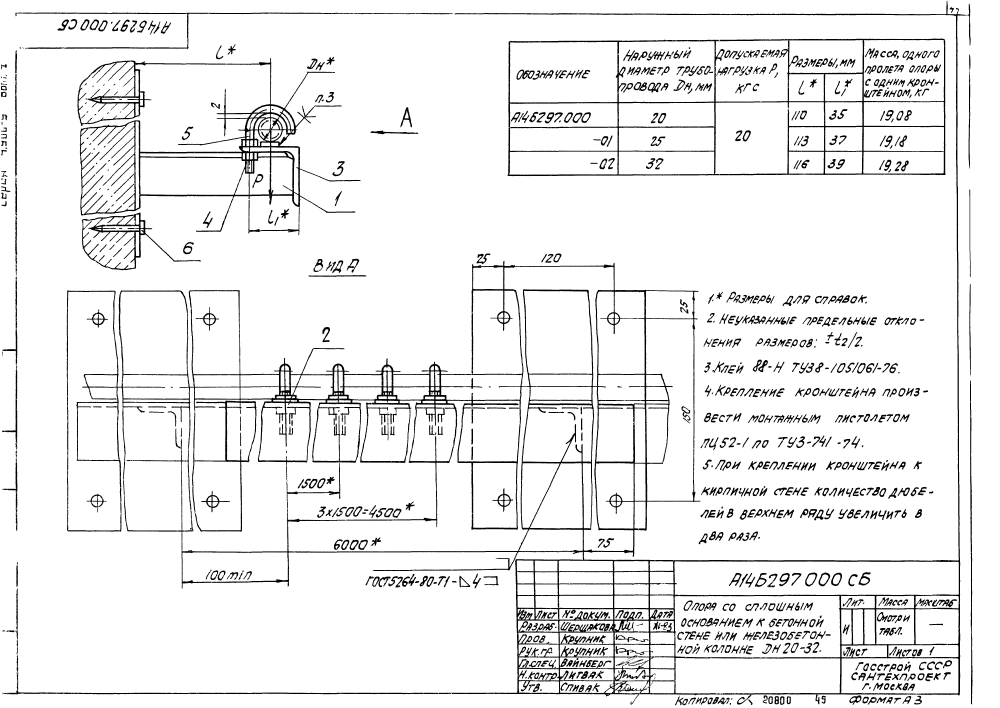 А14Б297.000 СБ
l*
Dн*
п.3
2
5
А
3
1
4
P
l₁*
6
ОБОЗНАЧЕНИЕ
НАРУЖНЫЙ ДИАМЕТР ТРУБО-ПРОВОДА Dн, мм
ДОПУСКАЕМАЯ НАГРУЗКА P, кгс
РАЗМЕРЫ, ММ
l*
l₁*
МАССА, ОДНОГО ПРОЛЕТА ОПОРЫ С ОДНИМ КРОН-ШТЕЙНОМ, КГ
А14Б297.000 20 20 110 35 19,08
-01 25 113 37 19,18
-02 32 116 39 19,28
ВИД А
25
120
25
150
2
1500*
3х1500=4500*
6000*
75
100 min
ГОСТ5264-80-Т1-⊿4
1.* РАЗМЕРЫ ДЛЯ СПРАВОК.
2. НЕУКАЗАННЫЕ ПРЕДЕЛЬНЫЕ ОТКЛО-
НЕНИЯ РАЗМЕРОВ: ±t2/2.
3. КЛЕЙ 88-Н ТУ38-1051061-76.
4. КРЕПЛЕНИЕ КРОНШТЕЙНА ПРОИЗ-
ВЕСТИ МОНТАЖНЫМ ПИСТОЛЕТОМ
ПЦ52-1 ПО ТУ3-741-74.
5. ПРИ КРЕПЛЕНИИ КРОНШТЕЙНА К
КИРПИЧНОЙ СТЕНЕ КОЛИЧЕСТВО ДЮБЕ-
ЛЕЙ В ВЕРХНЕМ РЯДУ УВЕЛИЧИТЬ В
ДВА РАЗА.
А14Б297.000 СБ
ИЗМ ЛИСТ № ДОКУМ. ПОДП. ДАТА
РАЗРАБ. ШЕРШАКОВА
ПРОВ. КРУПНИК
РУК.ГР. КРУПНИК
ГЛ.СПЕЦ. ВАЙНБЕРГ
Н.КОНТР. ЛИТВАК
УТВ. СПИВАК
ОПОРА СО СПЛОШНЫМ
ОСНОВАНИЕМ К БЕТОННОЙ
СТЕНЕ ИЛИ ЖЕЛЕЗОБЕТОН-
НОЙ КОЛОННЕ DН 20-32.
ЛИТ. МАССА МАСШТАБ
И СМОТРИ ТАБЛ. —
ЛИСТ ЛИСТОВ 1
ГОССТРОЙ СССР
САНТЕХПРОЕКТ
Г. МОСКВА
КОПИРОВАЛ: 20800 45 ФОРМАТ А3